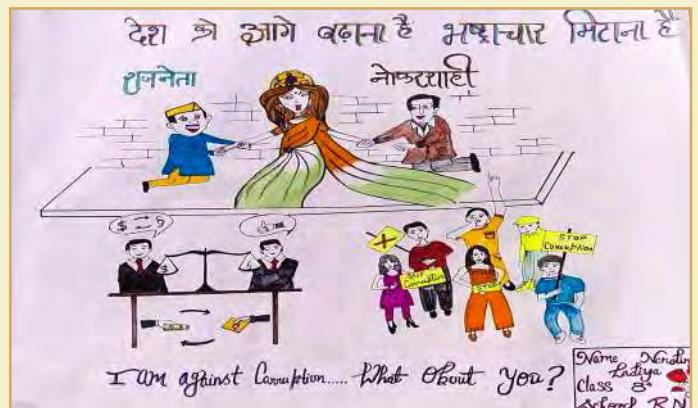 देश को आगे बढ़ाना है भष्ट्राचार मिटाना है
राजनेता
नोकरशाही
$ $
STOP
Corruption
STOP
Corruption
STOP
I am against Corruption..... What About You?
Name Nandin
Class 8th
School R N